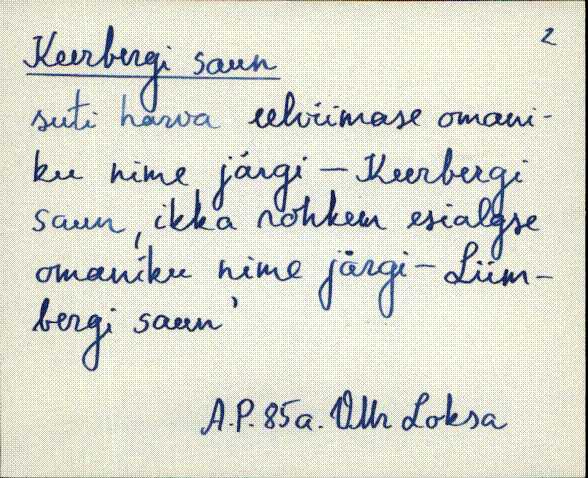 2
Kurbergi saun
suti harva eelviimase omani-
ku nime järgi – Kurbergi
saun, ikka rohkem esialgse
omaniku nime järgi – Liim-
bergi saun'
A.P. 85a. Loksa